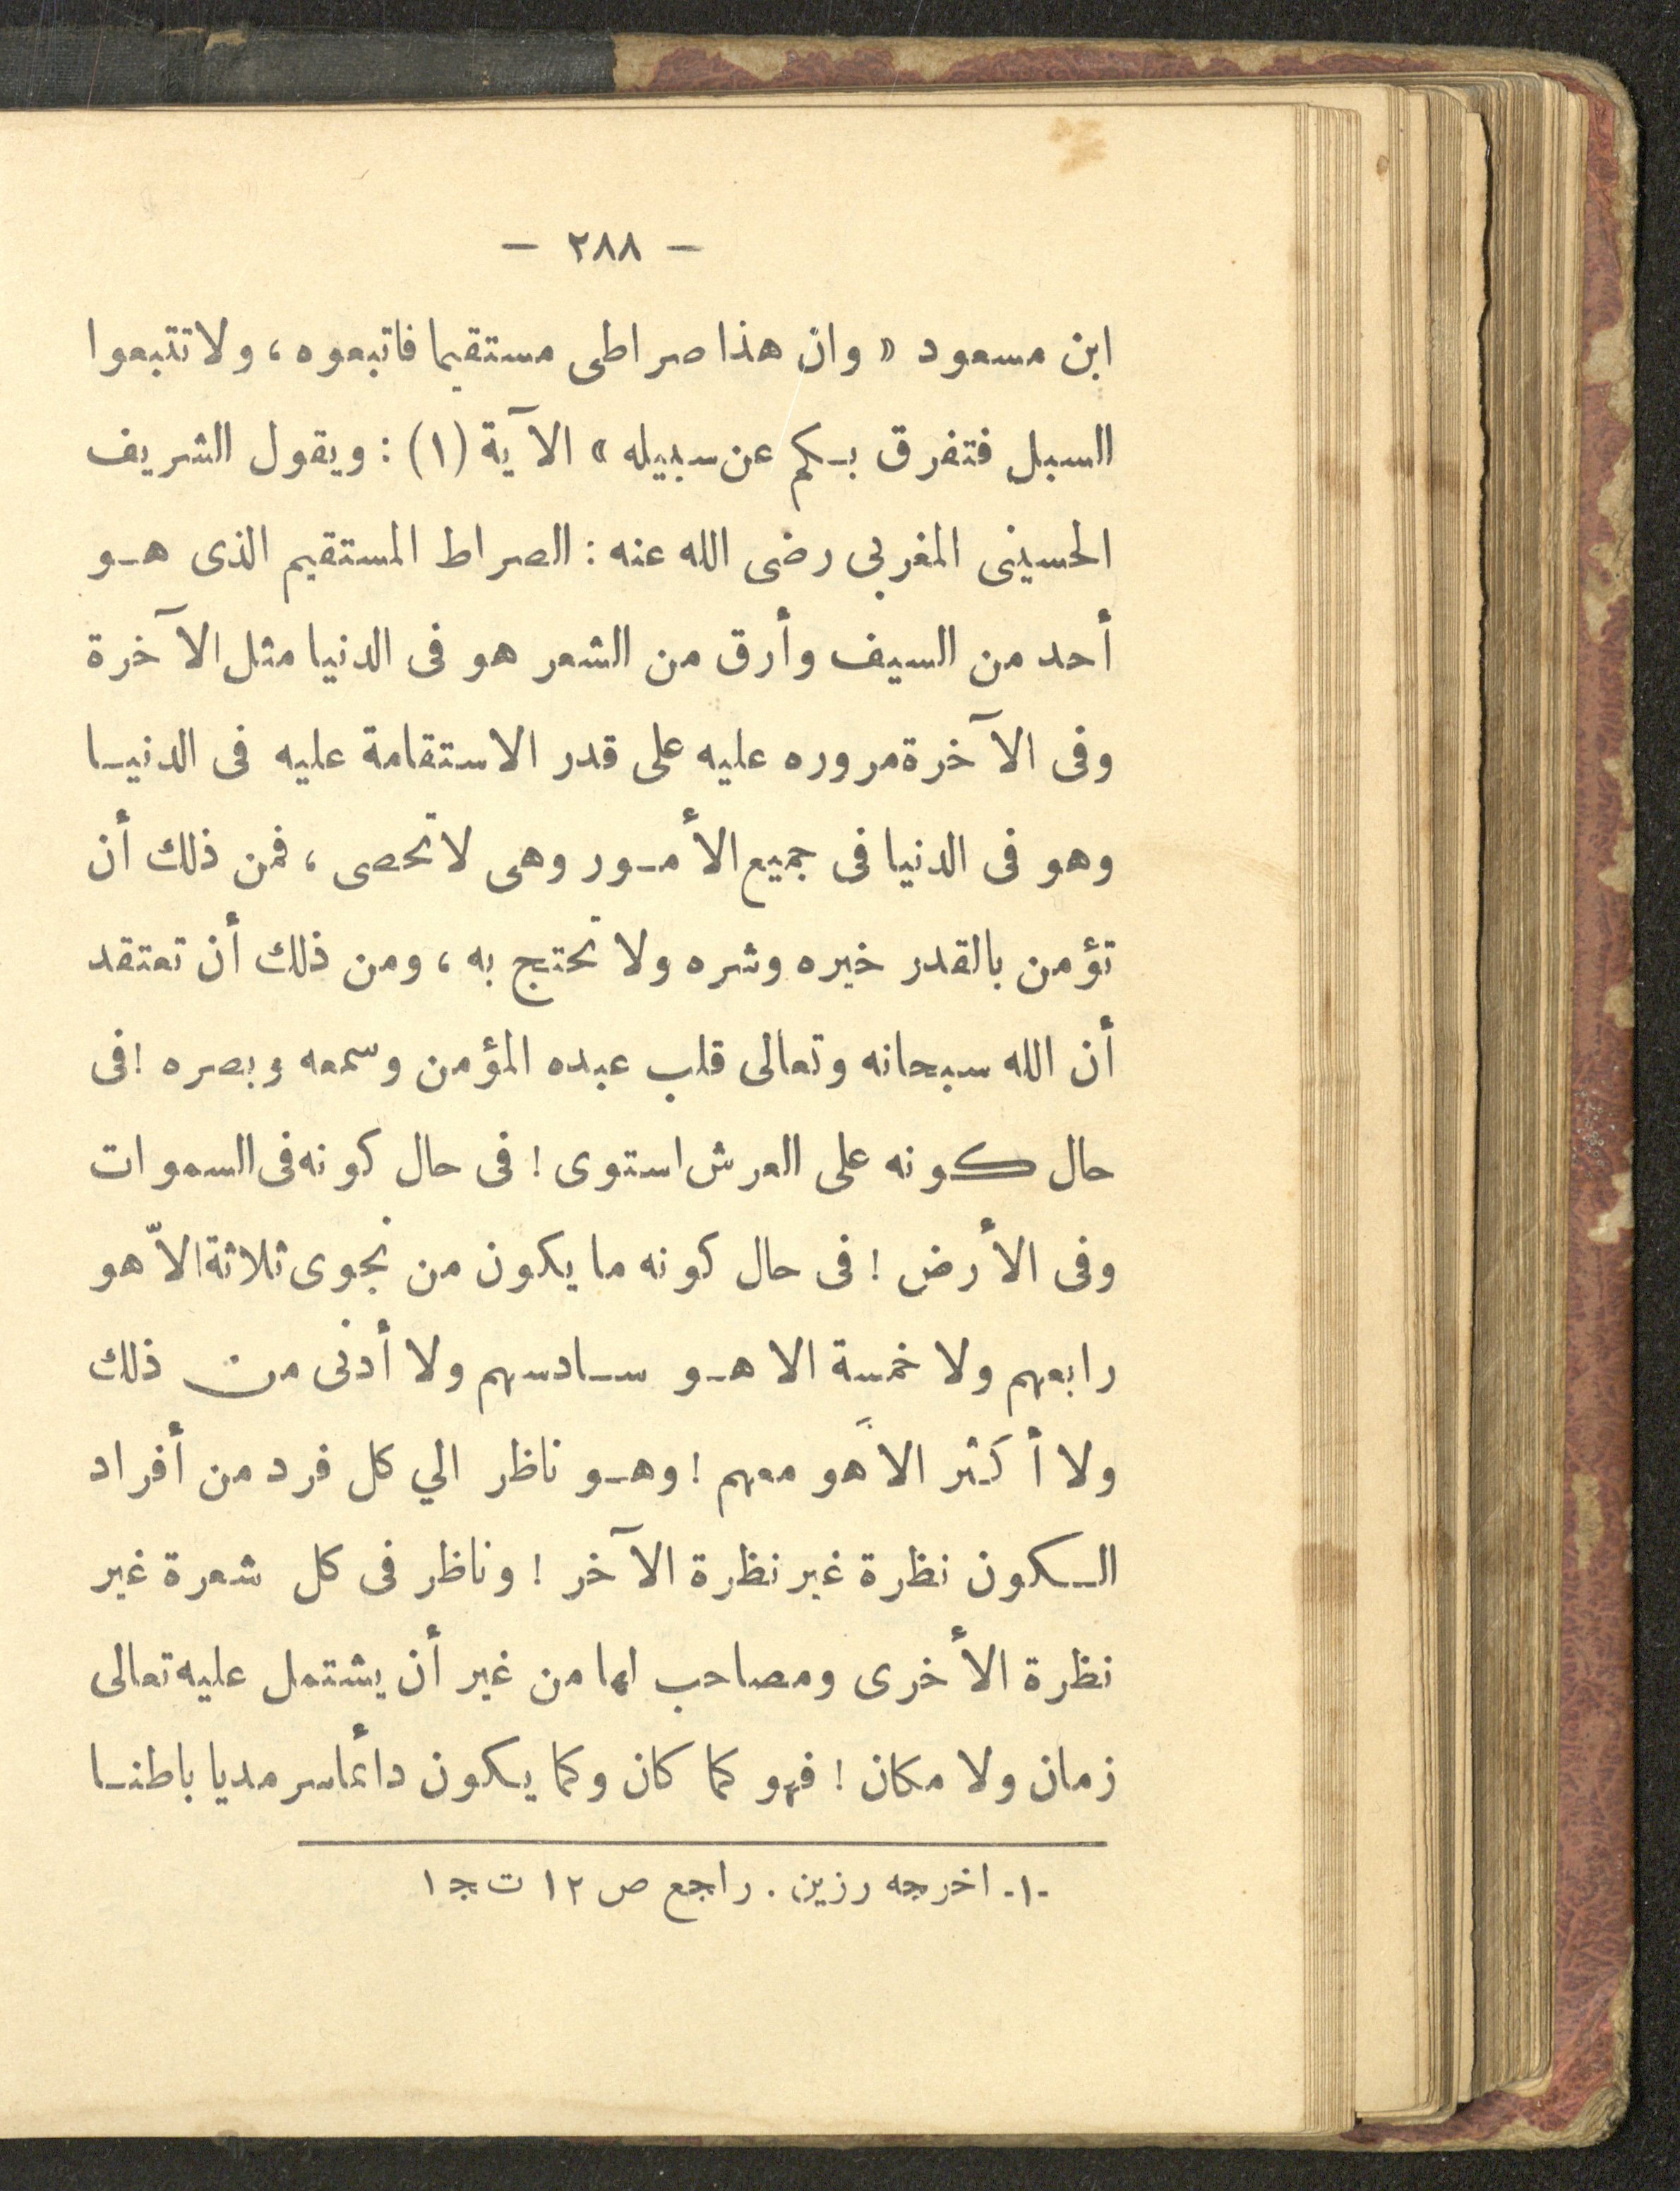 — ٢٨٨ —
ابن مسعود « وان هذا صراطى مستقيما فاتبعوه ، ولا تتبعوا
السبل فتفرق بـكم عن سبيله » الآية (١) : ويقول الشريف
الحسينى المغربى رضى الله عنه : الصراط المستقيم الذى هـو
أحد من السيف وأرق من الشعر هو فى الدنيا مثل الآخرة
وفى الآخرة مروره عليه على قدر الاستقامة عليه فى الدنيـا
وهو فى الدنيا فى جميع الأمـور وهى لا تحصى ، فمن ذلك أن
تؤمن بالقدر خيره وشره ولا تحتج به ، ومن ذلك أن تعتقد
أن الله سبحانه وتعالى قلب عبده المؤمن وسمعه وبصره ! فى
حال كونه على العرش استوى ! فى حال كونه فى السموات
وفى الأرض ! فى حال كونه ما يكون من نجوى ثلاثة الاّ هو
رابعهم ولا خمسة الا هـو سـادسهم ولا أدنى من ذلك
ولا أكثر الاَّ هو معهم ! وهـو ناظر الي كل فرد من أفراد
الـكون نظرة غير نظرة الآخر ! وناظر فى كل شعرة غير
نظرة الأخرى ومصاحب لها من غير أن يشتمل عليه تعالى
زمان ولا مكان ! فهو كما كان وكما يـكون دائما سرمديا باطنـا
-١- اخرجه رزين . راجع ص ١٢ ت ج ١